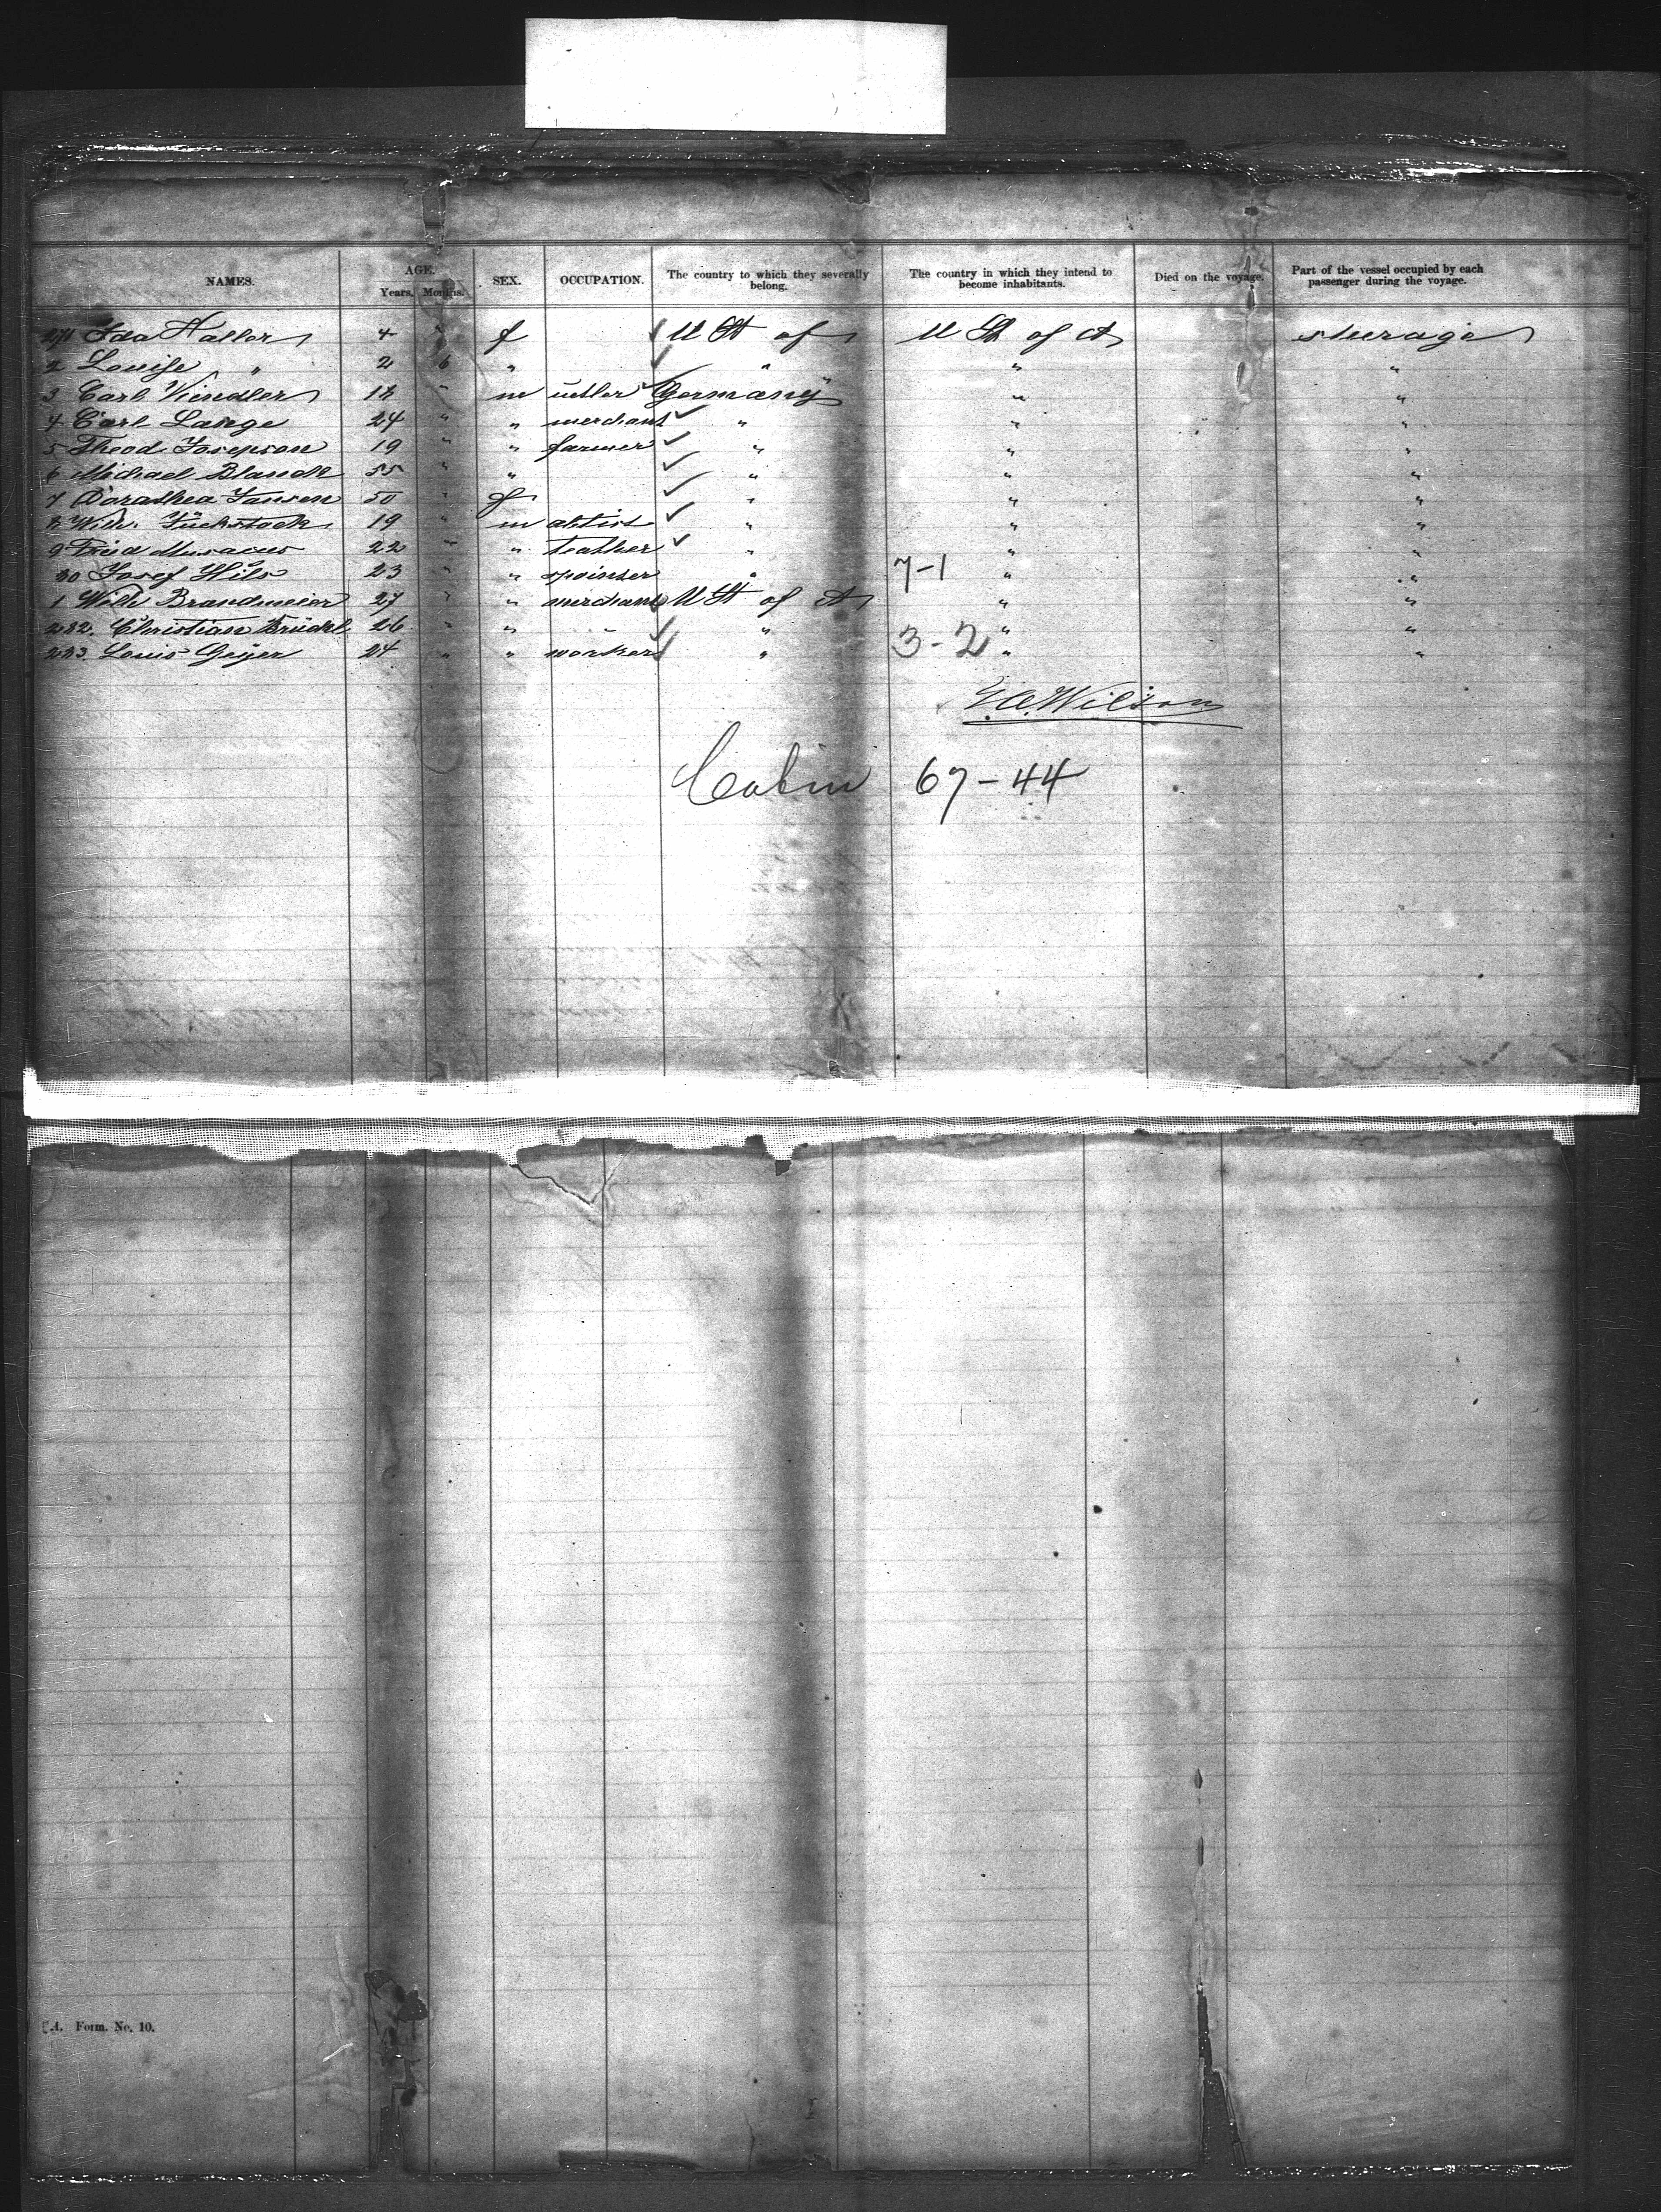 NAMES. AGE. Years. Months. SEX. OCCUPATION. The country to which they severally belong. The country in which they intend to become inhabitants. Died on the voyage. Part of the vessel occupied by each passenger during the voyage.
271 Ida Haller 4 " f U St of U St of A steerage
2 Louise " 2 6 " " " "
3 Carl 18 " m Germany " "
4 Carl Lange 24 " " merchant " " "
5 Theod Josepson 19 " " farmer " " "
6 Michael 55 " " " " "
7 Dorathea Jansen 50 " f " " "
8 Wilh. 19 " m " " "
9 Musaeus 22 " " " " "
Josef Hils 23 " " " 7-1 " "
1 Wilh Brandmeier 27 " " merchant U St of A " "
282. Christian Brückl 26 " " " " "
283. Louis Geijer 24 " " worker " 3-2 " "
Wilson
Cabin 67-44
A. Form. No. 10.